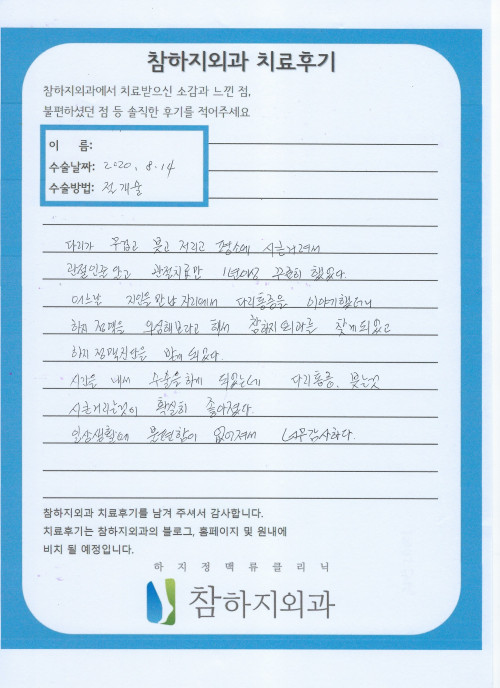 참하지외과 치료후기
참하지외과에서 치료받으신 소감과 느낀 점,
불편하셨던 점 등 솔직한 후기를 적어주세요
이 름:
수술날짜: 2020. 8. 14
수술방법: 절개술
다리가 무겁고 붓고 저리고 평소에 시큰거려서
관절인줄 알고 관절치료만 1년이상 꾸준히 했었다.
어느날 지인을 만난 자리에서 다리통증을 이야기했더니
하지정맥을 의심해보라고 해서 참하지외과를 찾게되었고
하지정맥진단을 받게 되었다.
시간을 내서 수술을 하게 되었는데 다리통증, 붓는것
시큰거리는것이 확실히 좋아졌다.
일상생활에 불편함이 없어져서 너무감사하다.
참하지외과 치료후기를 남겨 주셔서 감사합니다.
치료후기는 참하지외과의 블로그, 홈페이지 및 원내에
비치 될 예정입니다.
하지정맥류클리닉
참하지외과